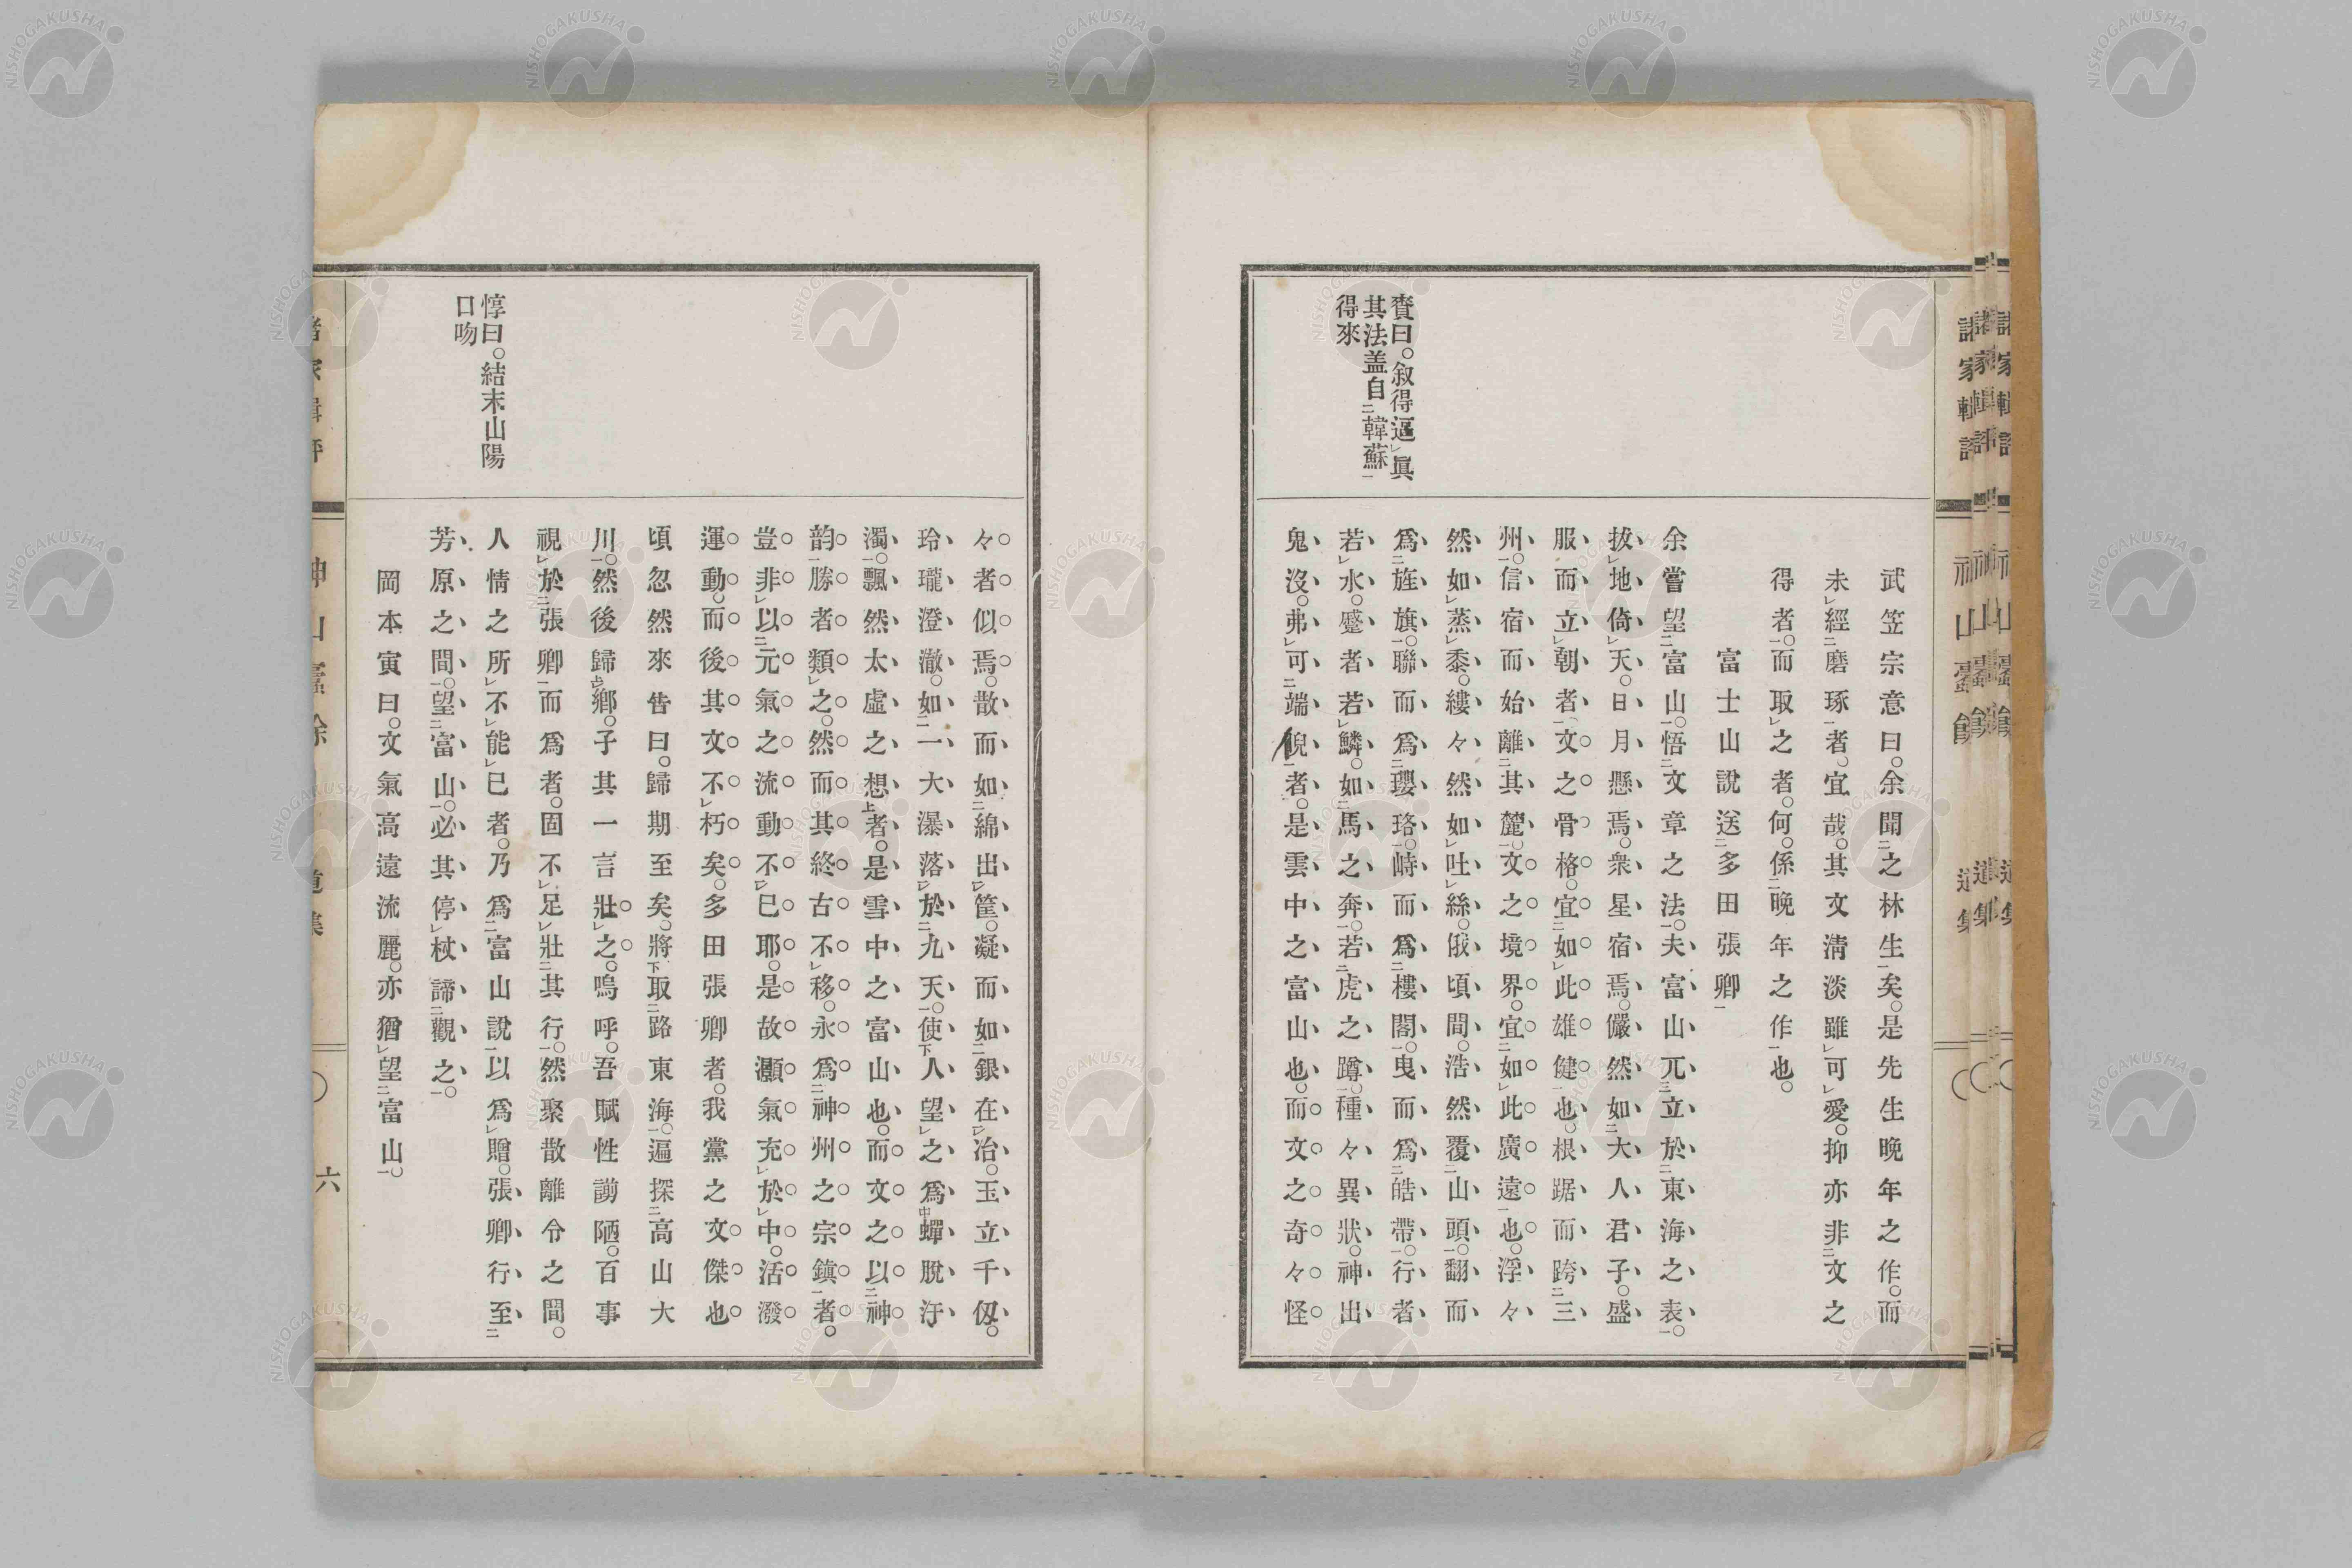 武笠宗意曰。余聞之林生矣。是先生晚年之作。而
未經磨琢者。宜哉。其文淸淡雖可愛。抑亦非文之
得者。而取之者。何。係晚年之作也。
富士山說送多田張卿
余嘗望富山。悟文章之法。夫富山兀立於東海之表。
拔地倚天。日月懸焉。衆星宿焉。儼然如大人君子。盛
服而立朝者。文之骨格。宜如此雄健也。根踞而跨三
州。信宿而始離其麓。文之境界。宜如此廣遠也。浮々
然如蒸黍。縷々然如吐絲。俄頃間。浩然覆山頭。翻而
爲旌旗。聯而爲瓔珞。峙而爲樓閣。曳而爲皓帶。行者
若水。蹙者若鱗。如馬之奔。若虎之蹲。種々異狀。神出
鬼沒。弗可端倪者。是雲中之富山也。而文之奇々怪
賚曰。叙得逼眞
其法盖自韓蘇
得來
々者似焉。散而如綿出筐。凝而如銀在冶。玉立千仭。
玲瓏澄澈。如一大瀑落於九天。使人望之爲蟬脫汙
濁。飄然太虛之想者。是雪中之富山也。而文之以神
韵勝者類之。然而其終古不移。永爲神州之宗鎭者。
豈非以元氣之流動不已耶。是故灝氣充於中。活潑
運動。而後其文不朽矣。多田張卿者。我黨之文傑也。
頃忽然來告曰。歸期至矣。將取路東海。遍探高山大
川。然後歸鄕。子其一言壯之。嗚呼。吾賦性謭陋。百事
視於張卿而爲者。固不足壯其行。然聚散離合之間。
人情之所不能已者。乃爲富山說以爲贈。張卿行至
芳原之間。望富山。必其停杖諦觀之。
岡本寅曰。文氣高遠流麗。亦猶望富山。
惇曰。結末山陽
口吻
六
NISHOGAKUSHA